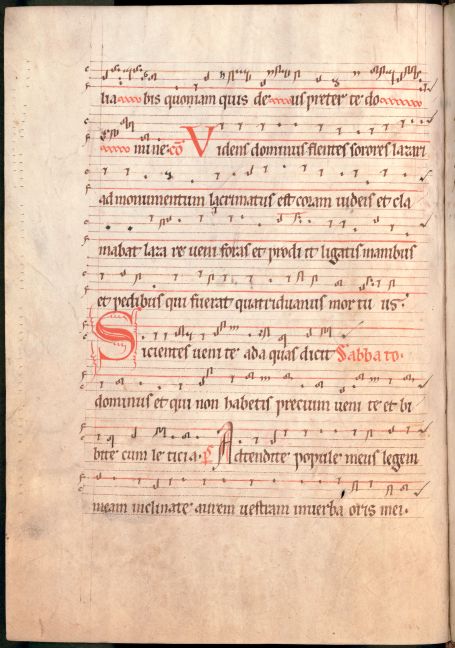 lia bis quoniam quis de us preter te do
mine. co Videns dominus flentes sorores lazari
ad monumentum lacrimatus est coram iudeis et cla
mabat lazare veni foras et prodiit ligatis manibus
et pedibus qui fuerat quatriduanus mortuus.
Sicientes venite ad aquas dicit Sabbato.
dominus et qui non habetis precium venite et bi
bite cum leticia. Adtendite popule meus legem
meam inclinate aurem vestram in verba oris mei.